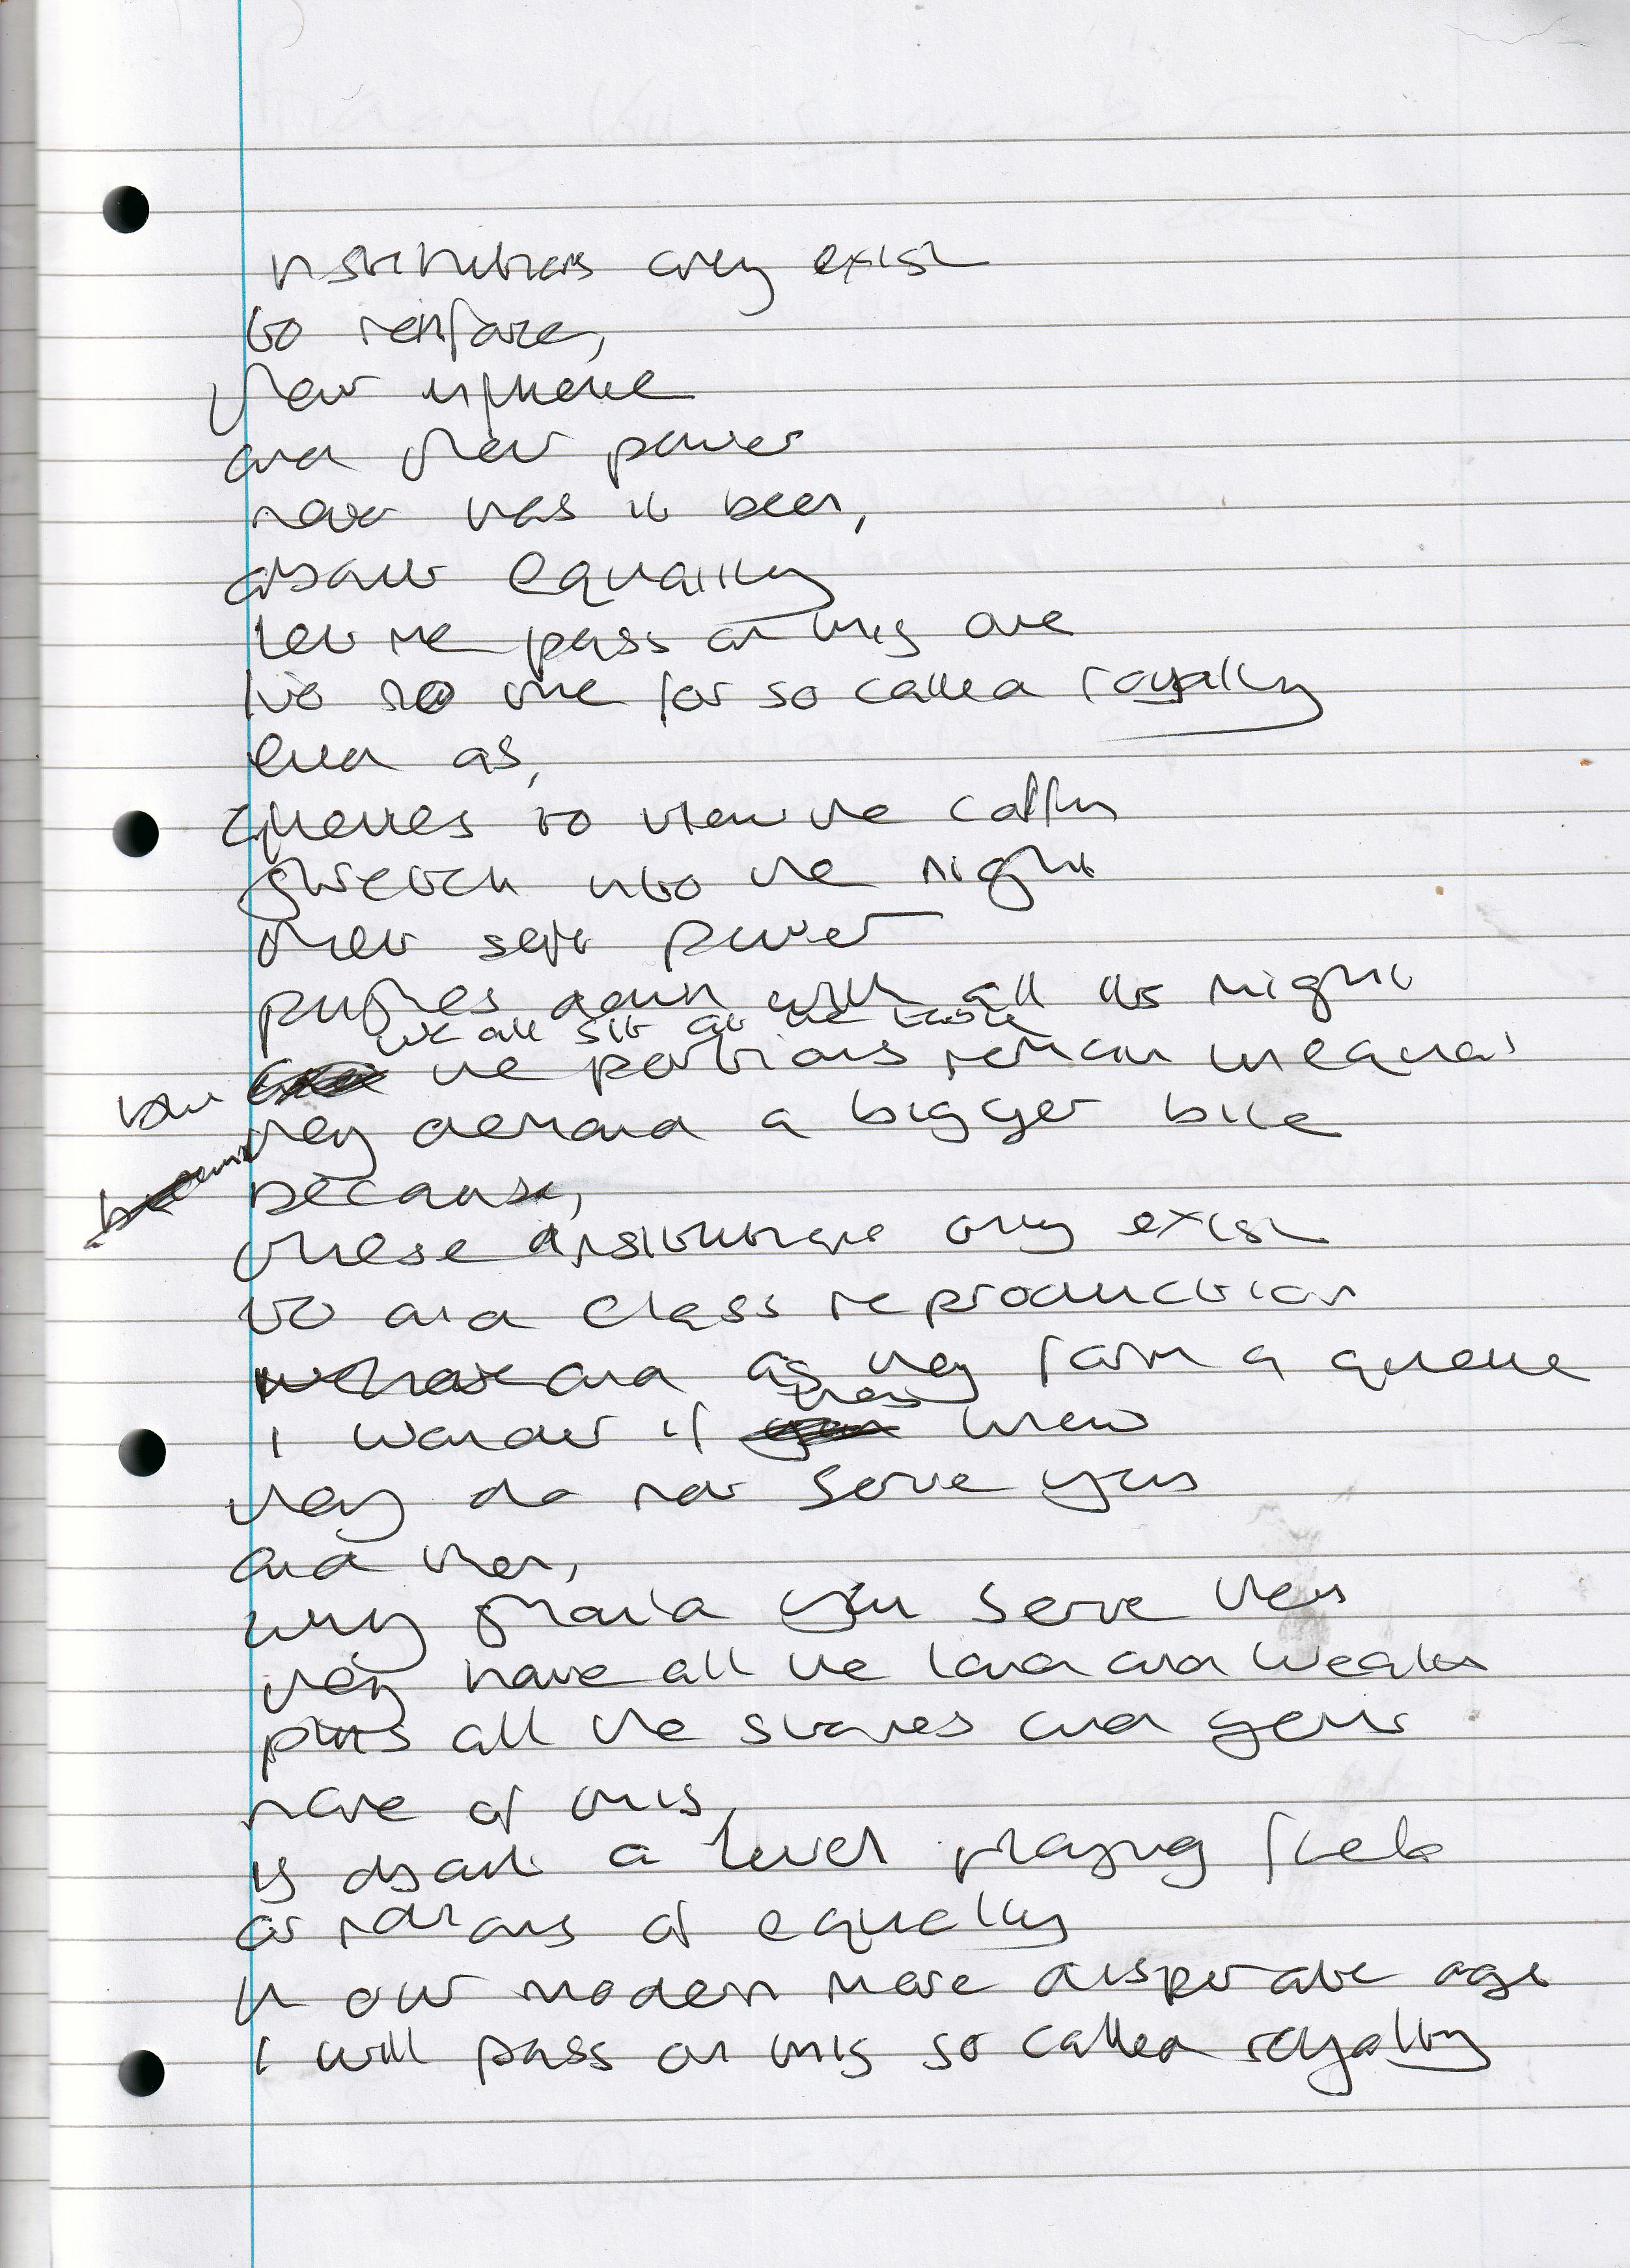 institutions only exist
to reinforce,
their influence
and their power
never has it been,
about equality
let me pass on this one
no no time for so called royalty
even as,
queues to view the coffin
stretch into the night
their soft power
pushes down with all its might
we all sit at the table
but the portions remain unequal
they demand a bigger bite
because,
these institutions only exist
to aid class reproduction
and as they form a queue
I wonder if those knew
they do not serve you
and then,
why should you serve them
they have all the land and wealth
plus all the slaves and gems
none of this,
is about a level playing field
or notions of equality
in our modern more disparate age
I will pass on this so called royalty